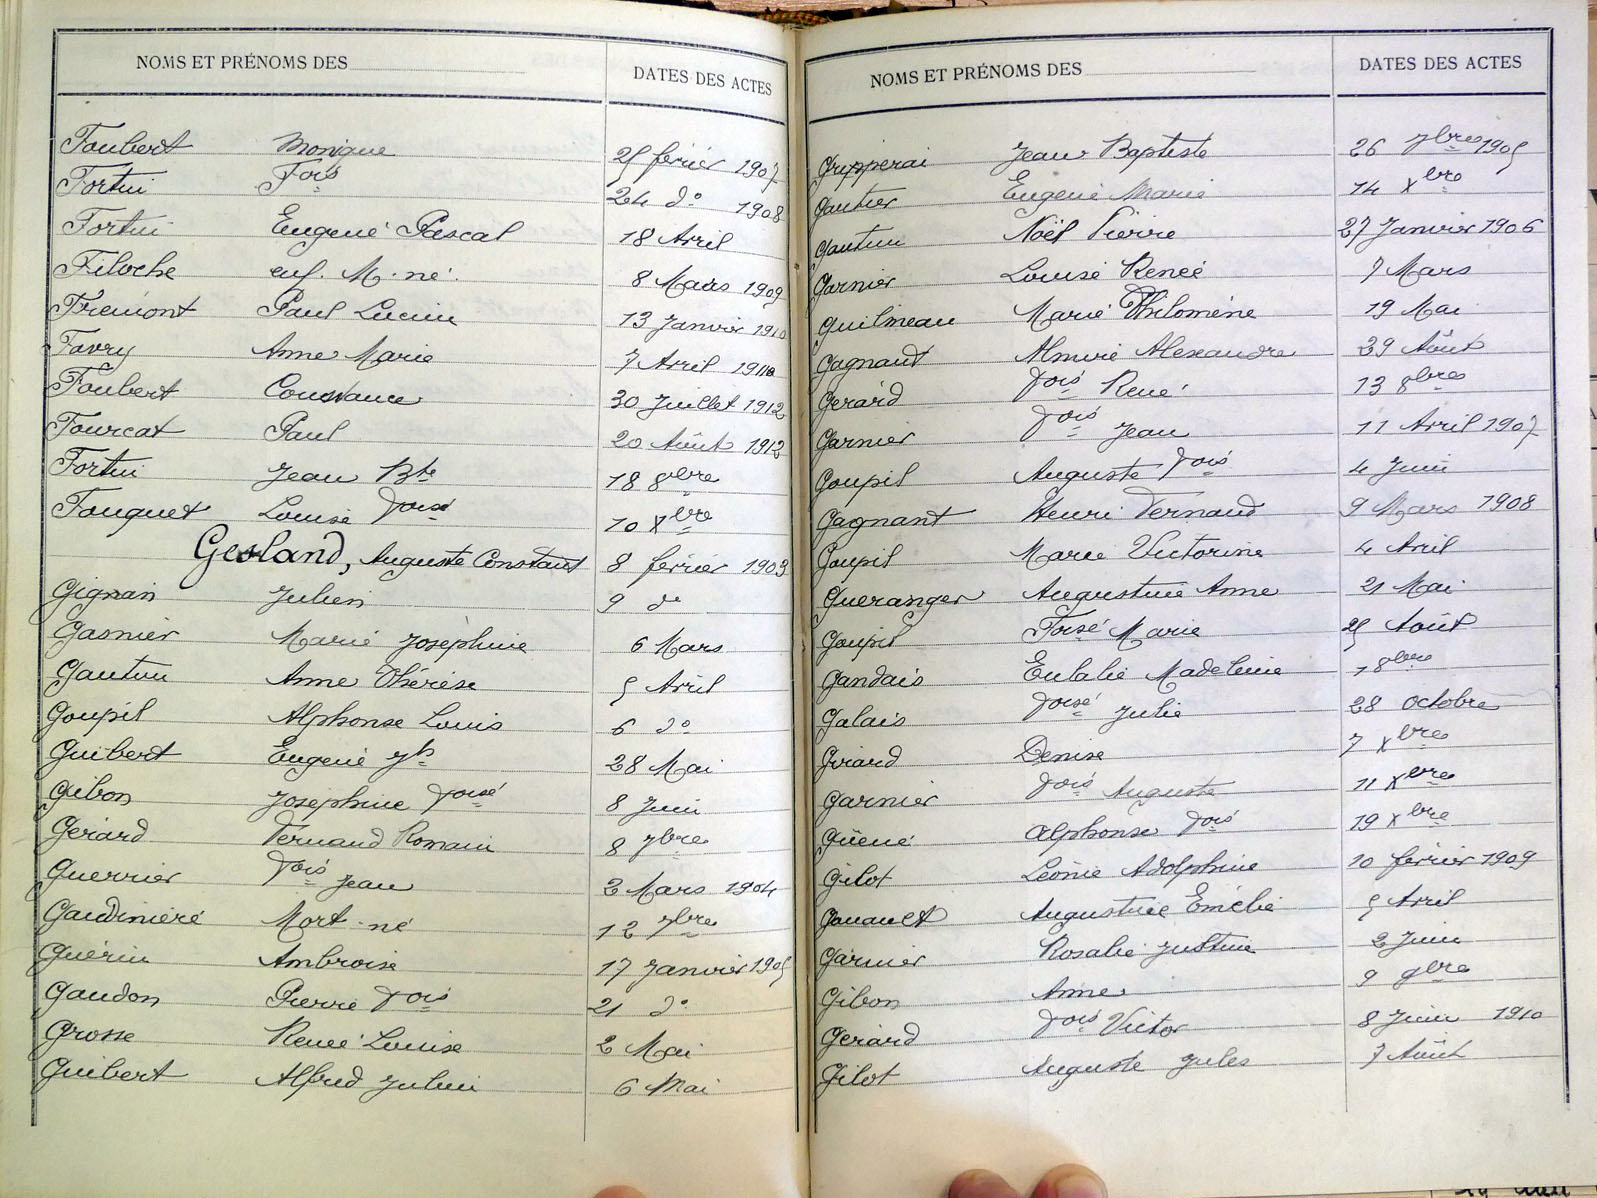 NOMS ET PRÉNOMS DES DATES DES ACTES
Foubert Monique 25 février 1907
Fortin Fois 24 do 1908
Fortin Eugène Pascal 18 Avril
Filoche enf. M. né. 8 Mars 1909
Fremont Paul Lucien 13 Janvier 1910
Favry Anne Marie 7 Avril
Foubert Constance 30 Juillet 1912
Fourcat Paul 20 Août 1912
Fortin Jean Bte 18 8bre
Fouquet Louise Foise 10 Xbre
Gesland, Auguste Constant 8 février 1903
Gignan Julien 9 do
Gasnier Marie Joséphine 6 Mars
Gautun Anne Thérèse 5 Avril
Goupil Alphonse Louis 6 do
Guibert Eugène Jh 28 Mai
Gibon Joséphine Foise 8 Juin
Gérard Fernand Romain 8 7bre
Guerrier Fois Jean 2 Mars 1904
Gaudinière Mort-né 12 7bre
Guérin Ambroise 17 Janvier 1905
Gaudon Pierre Fois 21 do
Grosse Renée Louise 2 Mai
Guibert Alfred Julien 6 Mai
NOMS ET PRÉNOMS DES DATES DES ACTES
Gripperai Jean Baptiste 26 7bre 1905
Gautier Eugène Marie 14 Xbre
Gautun Noël Pierre 27 Janvier 1906
Garnier Louise Renée 7 Mars
Guilmeau Marie Philomène 19 Mai
Gagnant Almire Alexandre 29 Août
Gérard Fois René 13 8bre
Garnier Fois Jean 11 Avril 1907
Goupil Auguste Fois 4 Juin
Gagnant Henri Fernand 9 Mars 1908
Goupil Marie Victorine 4 Avril
Gueranger Augustine Anne 21 Mai
Goupil Foise Marie 25 Août
Gandais Eulalie Madeleine 1 8bre
Galais Foise Julie 28 Octobre
Girard Denise 7 Xbre
Garnier Fois Auguste 11 Xbre
Guéné Alphonse Fois 19 Xbre
Gilot Léonie Adolphine 10 février 1909
Gouault Augustine Emélie 5 Avril
Garnier Rosalie Justine 2 Juin
Gibon Anne 9 9bre
Gérard Fois Victor 8 Juin 1910
Gilot Auguste Jules 7 Août